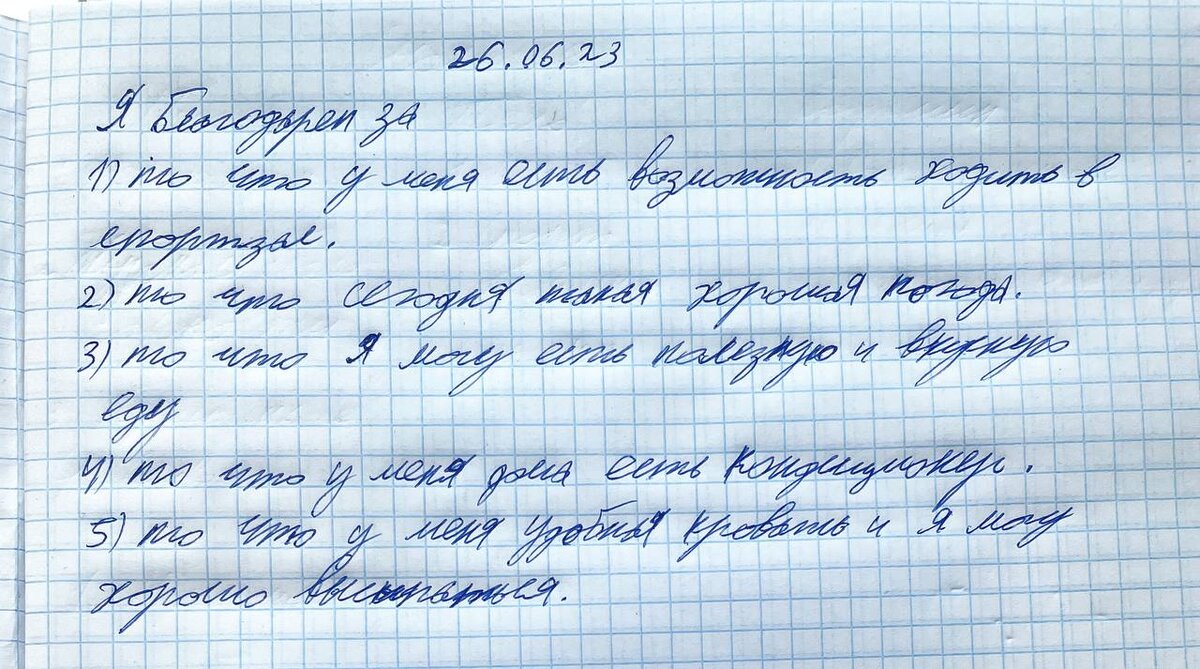 26.06.23
Я благодарен за
1) то что у меня есть возможность ходить в
спортзал.
2) то что сегодня такая хорошая погода.
3) то что я могу есть полезную и вкусную
еду
4) то что у меня дома есть кондиционер.
5) то что у меня удобная кровать и я могу
хорошо высыпаться.